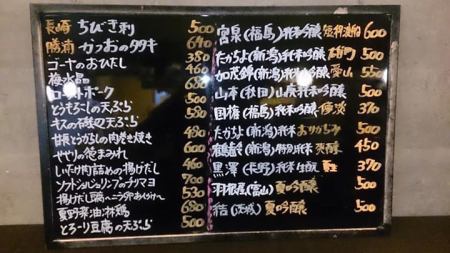 長崎 ちびき刺 500
勝浦 かつおのタタキ 640
ゴーヤのおひたし 380
梅水晶 460
ローストポーク
とうもろこしの天ぷら 580
キスの磯辺天ぷら
甘長とうがらしの肉巻き焼き 600
せせりの德まみれ
しいたけ肉詰めの揚げだし
ソフトシェルシュリンプのチリマヨ 700
揚げだし豆腐〜ニラ卵あんかけ〜 530
夏野菜油淋鶏 680
とろーり豆腐の天ぷら 500
宮泉(福島)純米吟醸 600
たかちよ(新潟)純米吟醸 雄町
加茂錦(新潟)純米吟醸 愛山 550
山本(秋田)山廃純米吟醸 500
国権(福島)純米 370
たかちよ(新潟)純米 おりがらみ 500
鶴齢(新潟)特別純米 爽醇 450
黒澤(長野)純米生酛 370
羽根屋(富山)夏吟醸 500
結(茨城)夏吟醸 500